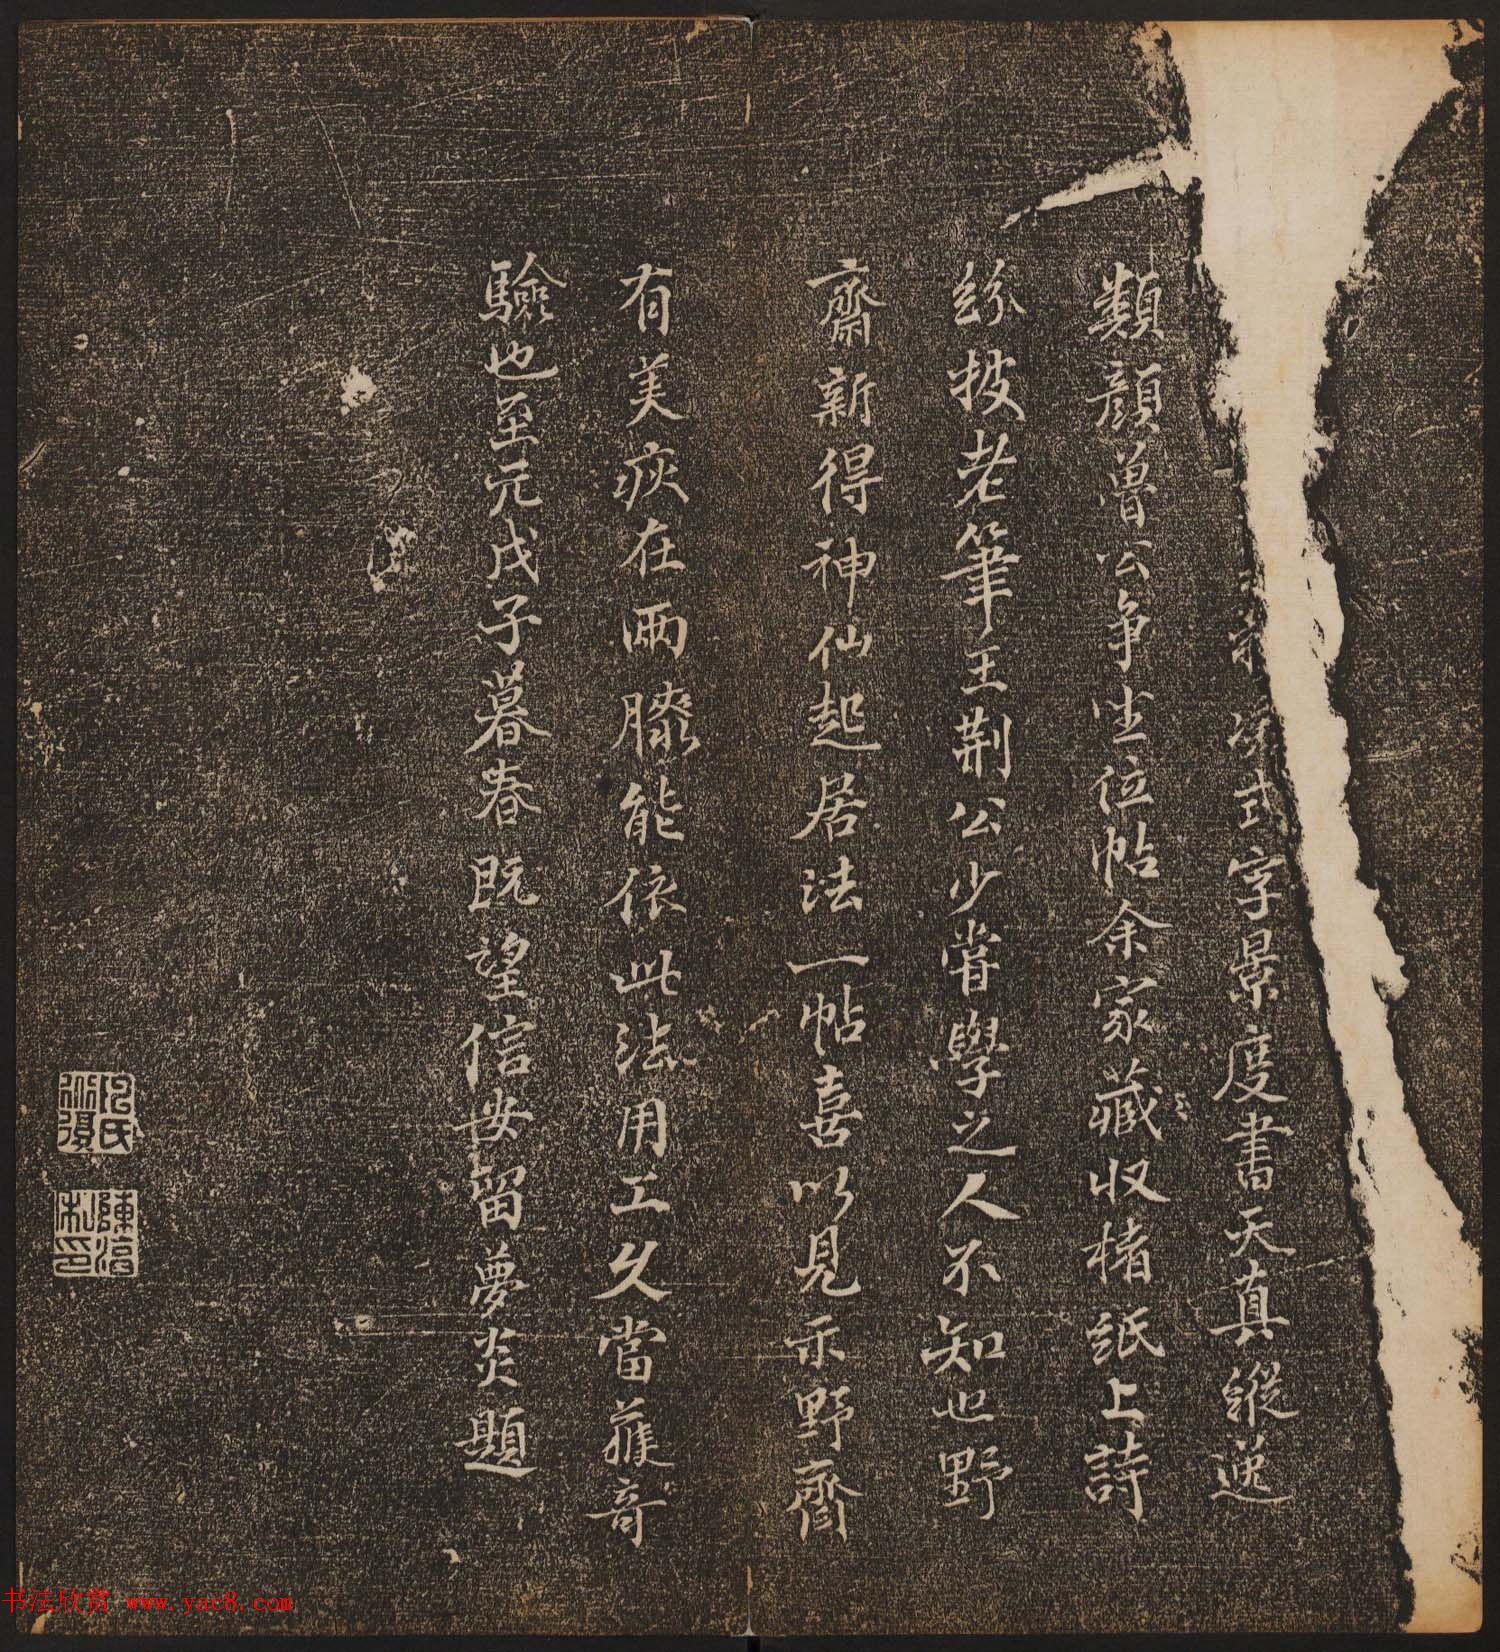 凝式字景度書天真縱逸
類顏魯公爭坐位帖余家藏收楮紙上詩
紛披老筆王荊公少嘗學之人不知也野
齋新得神仙起居法一帖喜以見示野齋
有美疢在兩膝能依此法用工久當獲奇
驗也至元戊子暮春既望信安留夢炎題
书法欣赏 www.yac8.com